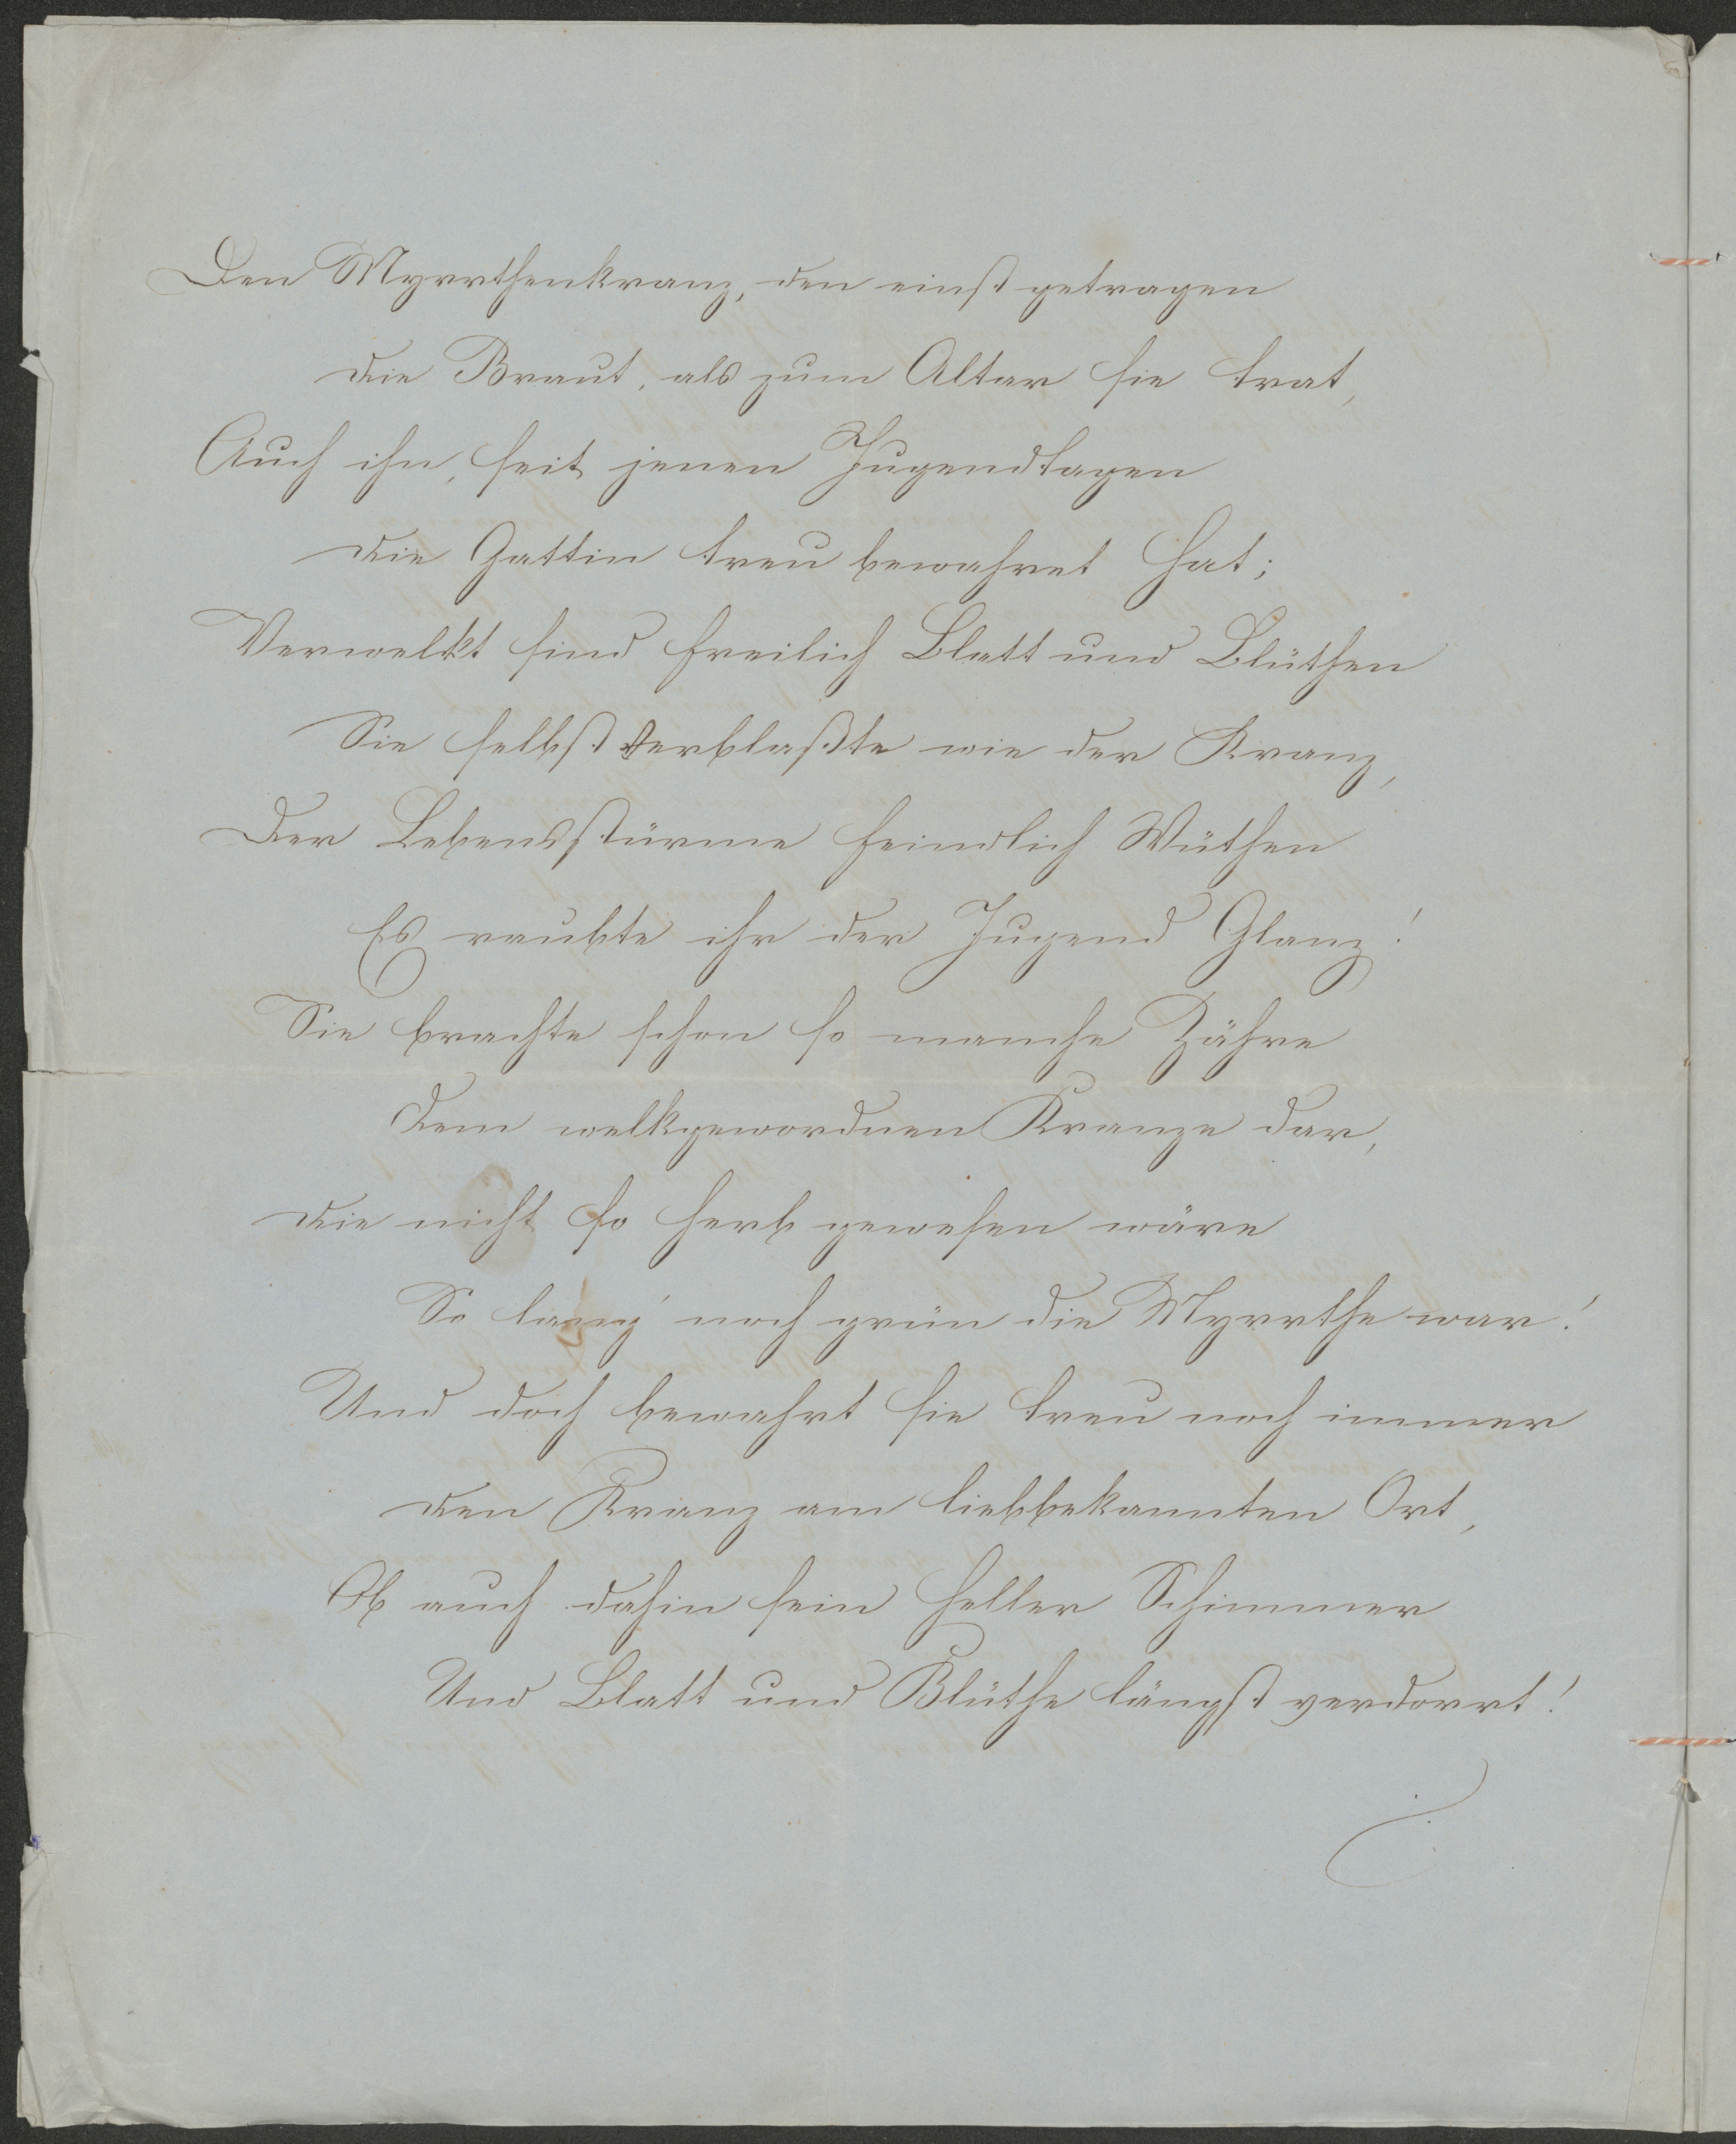 Den Myrrthenkranz, den einst getragen
die Braut, als zum Altar sie trat,
Auch ihn, seit jenen Jugendtagen
die Gattin treu bewahret hat;
Verwelkt sind freilich Blatt und Blüthen
Sie selbst verblaßte wie der Kranz,
Der Lebensstürme feindlich Wüthen
Es raubte ihr der Jugend Glanz!
Sie brachte schon so manche Zähre
dem welkgewordnen Kranze dar,
die nicht so herb gewesen wäre
So lang' noch grün die Myrrthe war!
Und doch bewahrt sie treu noch immer
den Kranz am liebbekannten Ort,
Ob auch dahin sein heller Schimmer
Und Blatt und Blüthe längst verdorrt!